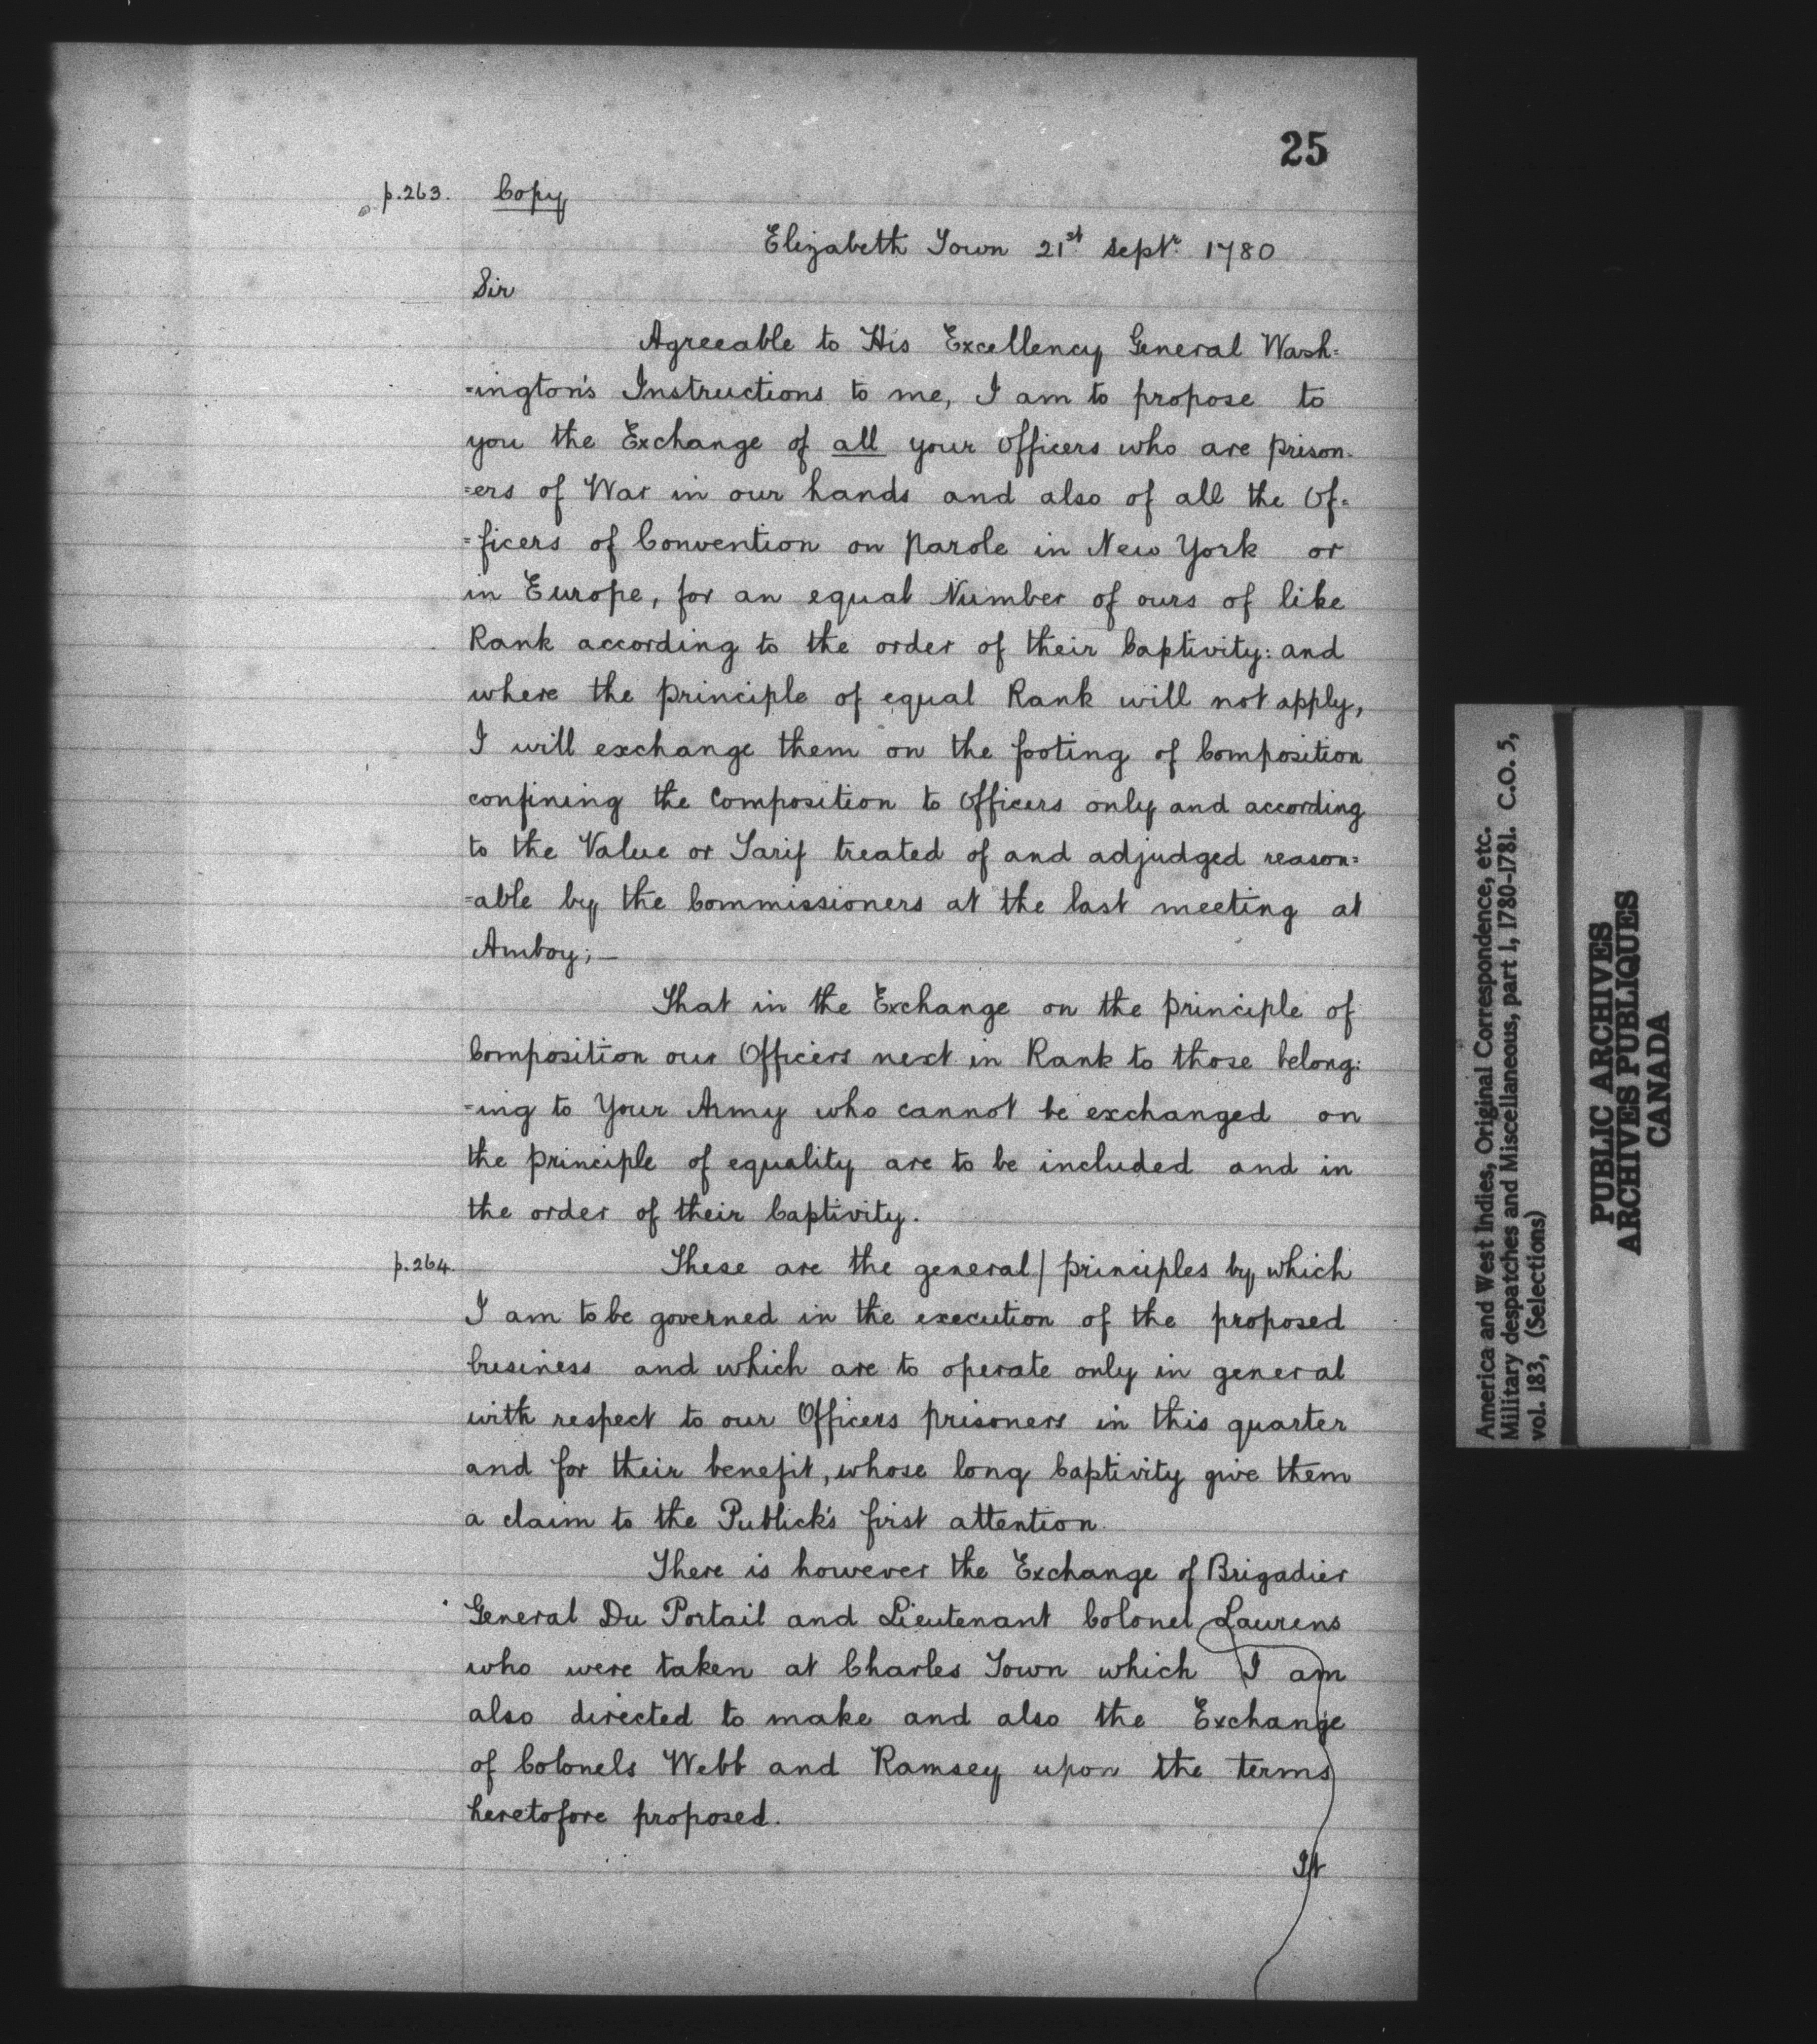 25
p.263. Copy
Elizabeth Town 21st Septr 1780
Sir
Agreeable to His Excellency General Wash=
=ington's Instructions to me, I am to propose to
you the Exchange of all your Officers who are prison-
=ers of War in our hands and also of all the Of=
=ficers of Convention on Parole in New York or
in Europe, for an equal Number of ours of like
Rank according to the order of their Captivity: and
where the principle of equal Rank will not apply,
I will exchange them on the footing of Composition
confining the Composition to Officers only and according
to the Value or Tarif treated of and adjudged reason=
=able by the Commissioners at the last meeting at
Amboy;—
That in the Exchange on the principle of
Composition our Officers next in Rank to those belong:
=ing to Your Army who cannot be exchanged on
the principle of equality are to be included and in
the order of their Captivity.
p.264. These are the general/ principles by which
I am to be governed in the execution of the proposed
business and which are to operate only in general
with respect to our Officers prisoners in this quarter
and for their benefit, whose long Captivity give them
a claim to the Publick's first attention.
There is however the Exchange of Brigadier
General Du Portail and Lieutenant Colonel Laurens
who were taken at Charles Town which I am
also directed to make and also the Exchange
of Colonels Webb and Ramsey upon the terms
heretofore proposed.
It
America and West Indies, Original Correspondence, etc.
Military despatches and Miscellaneous, part 1, 1780-1781. C.O. 5,
vol. 183, (Selections)
PUBLIC ARCHIVES
ARCHIVES PUBLIQUES
CANADA